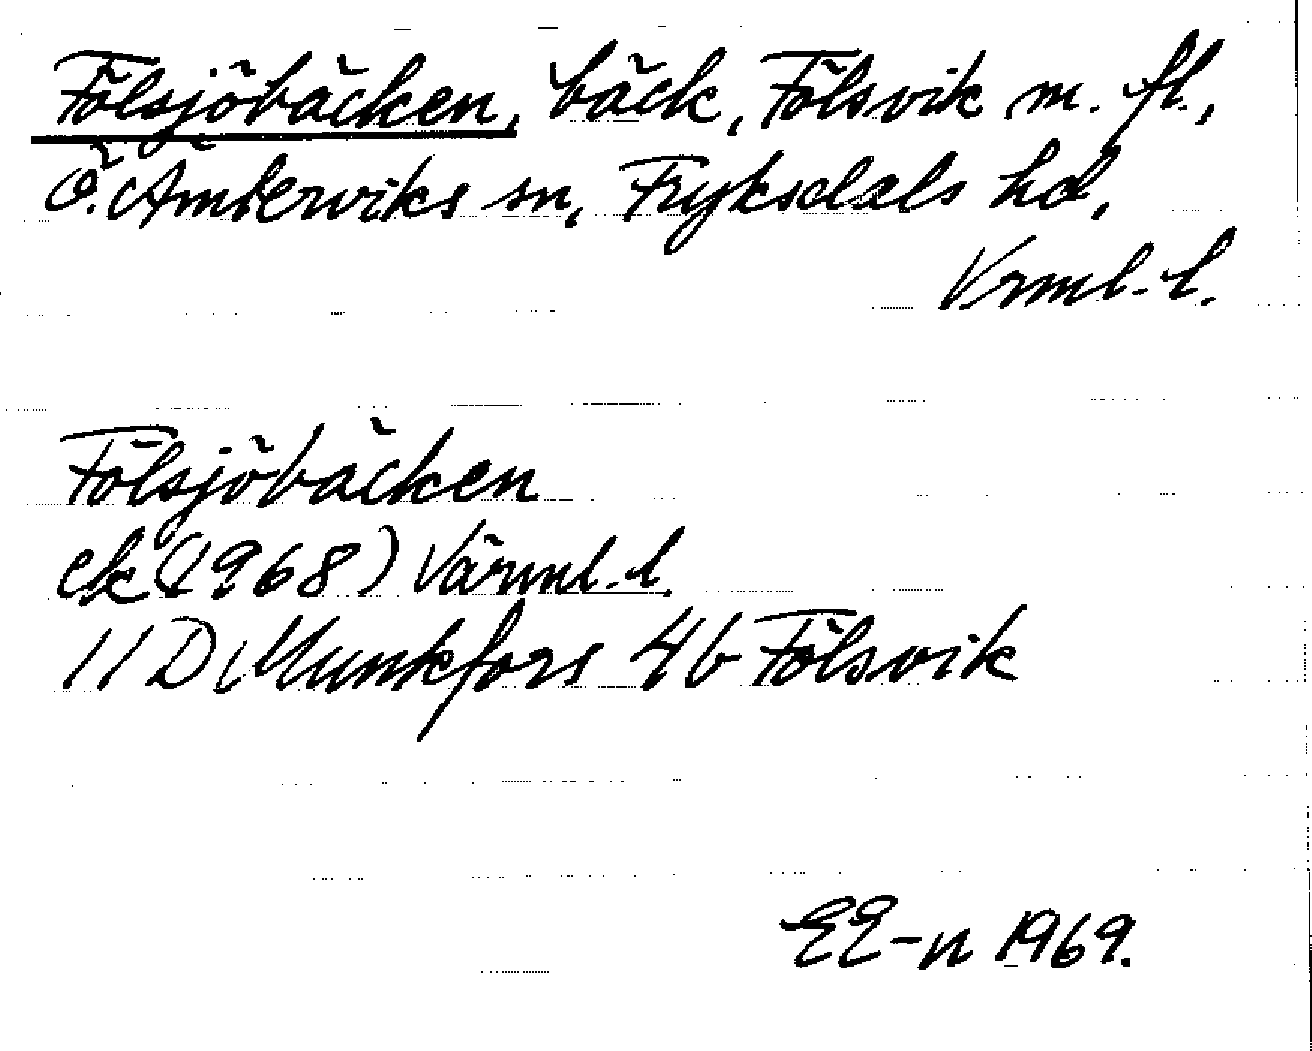 Fölsjöbäcken, bäck, Fölsvik m. fl.,
Ö. Ämterviks sn, Fryksdals hd,
Vrml. l.
Fölsjöbäcken
ek (1968) Värml. l.
11 D Munkfors 4b Fölsvik
EE-n 1969.